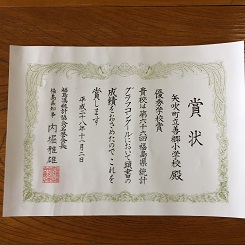 賞状
優秀学校賞
矢吹町立善郷小学校殿
貴校は第六十六回福島県統計
グラフコンクールにおいて頭書の
成績をおさめたのでこれを
賞します
平成二十八年十一月二日
福島県統計協会名誉会長
福島県知事 内堀雅雄